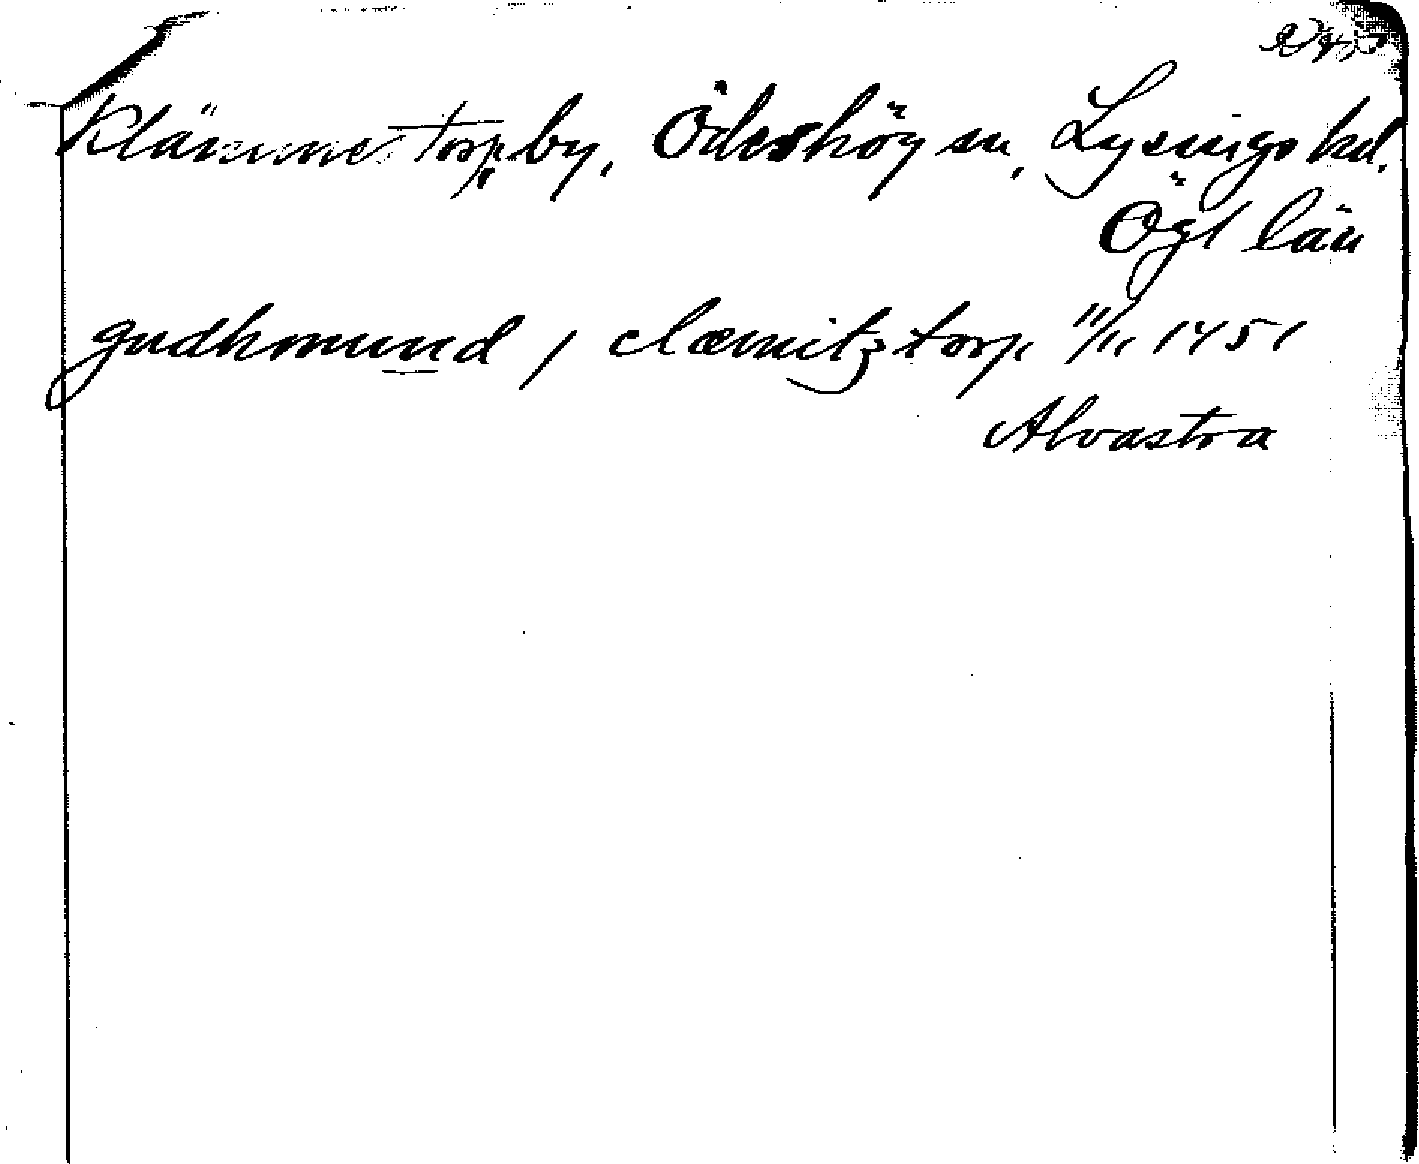 Klämmestorp by, Ödeshög sn, Lysings hd.
Ögl län
gudhmund j clæmitztorp 11/11 1451
Alvastra